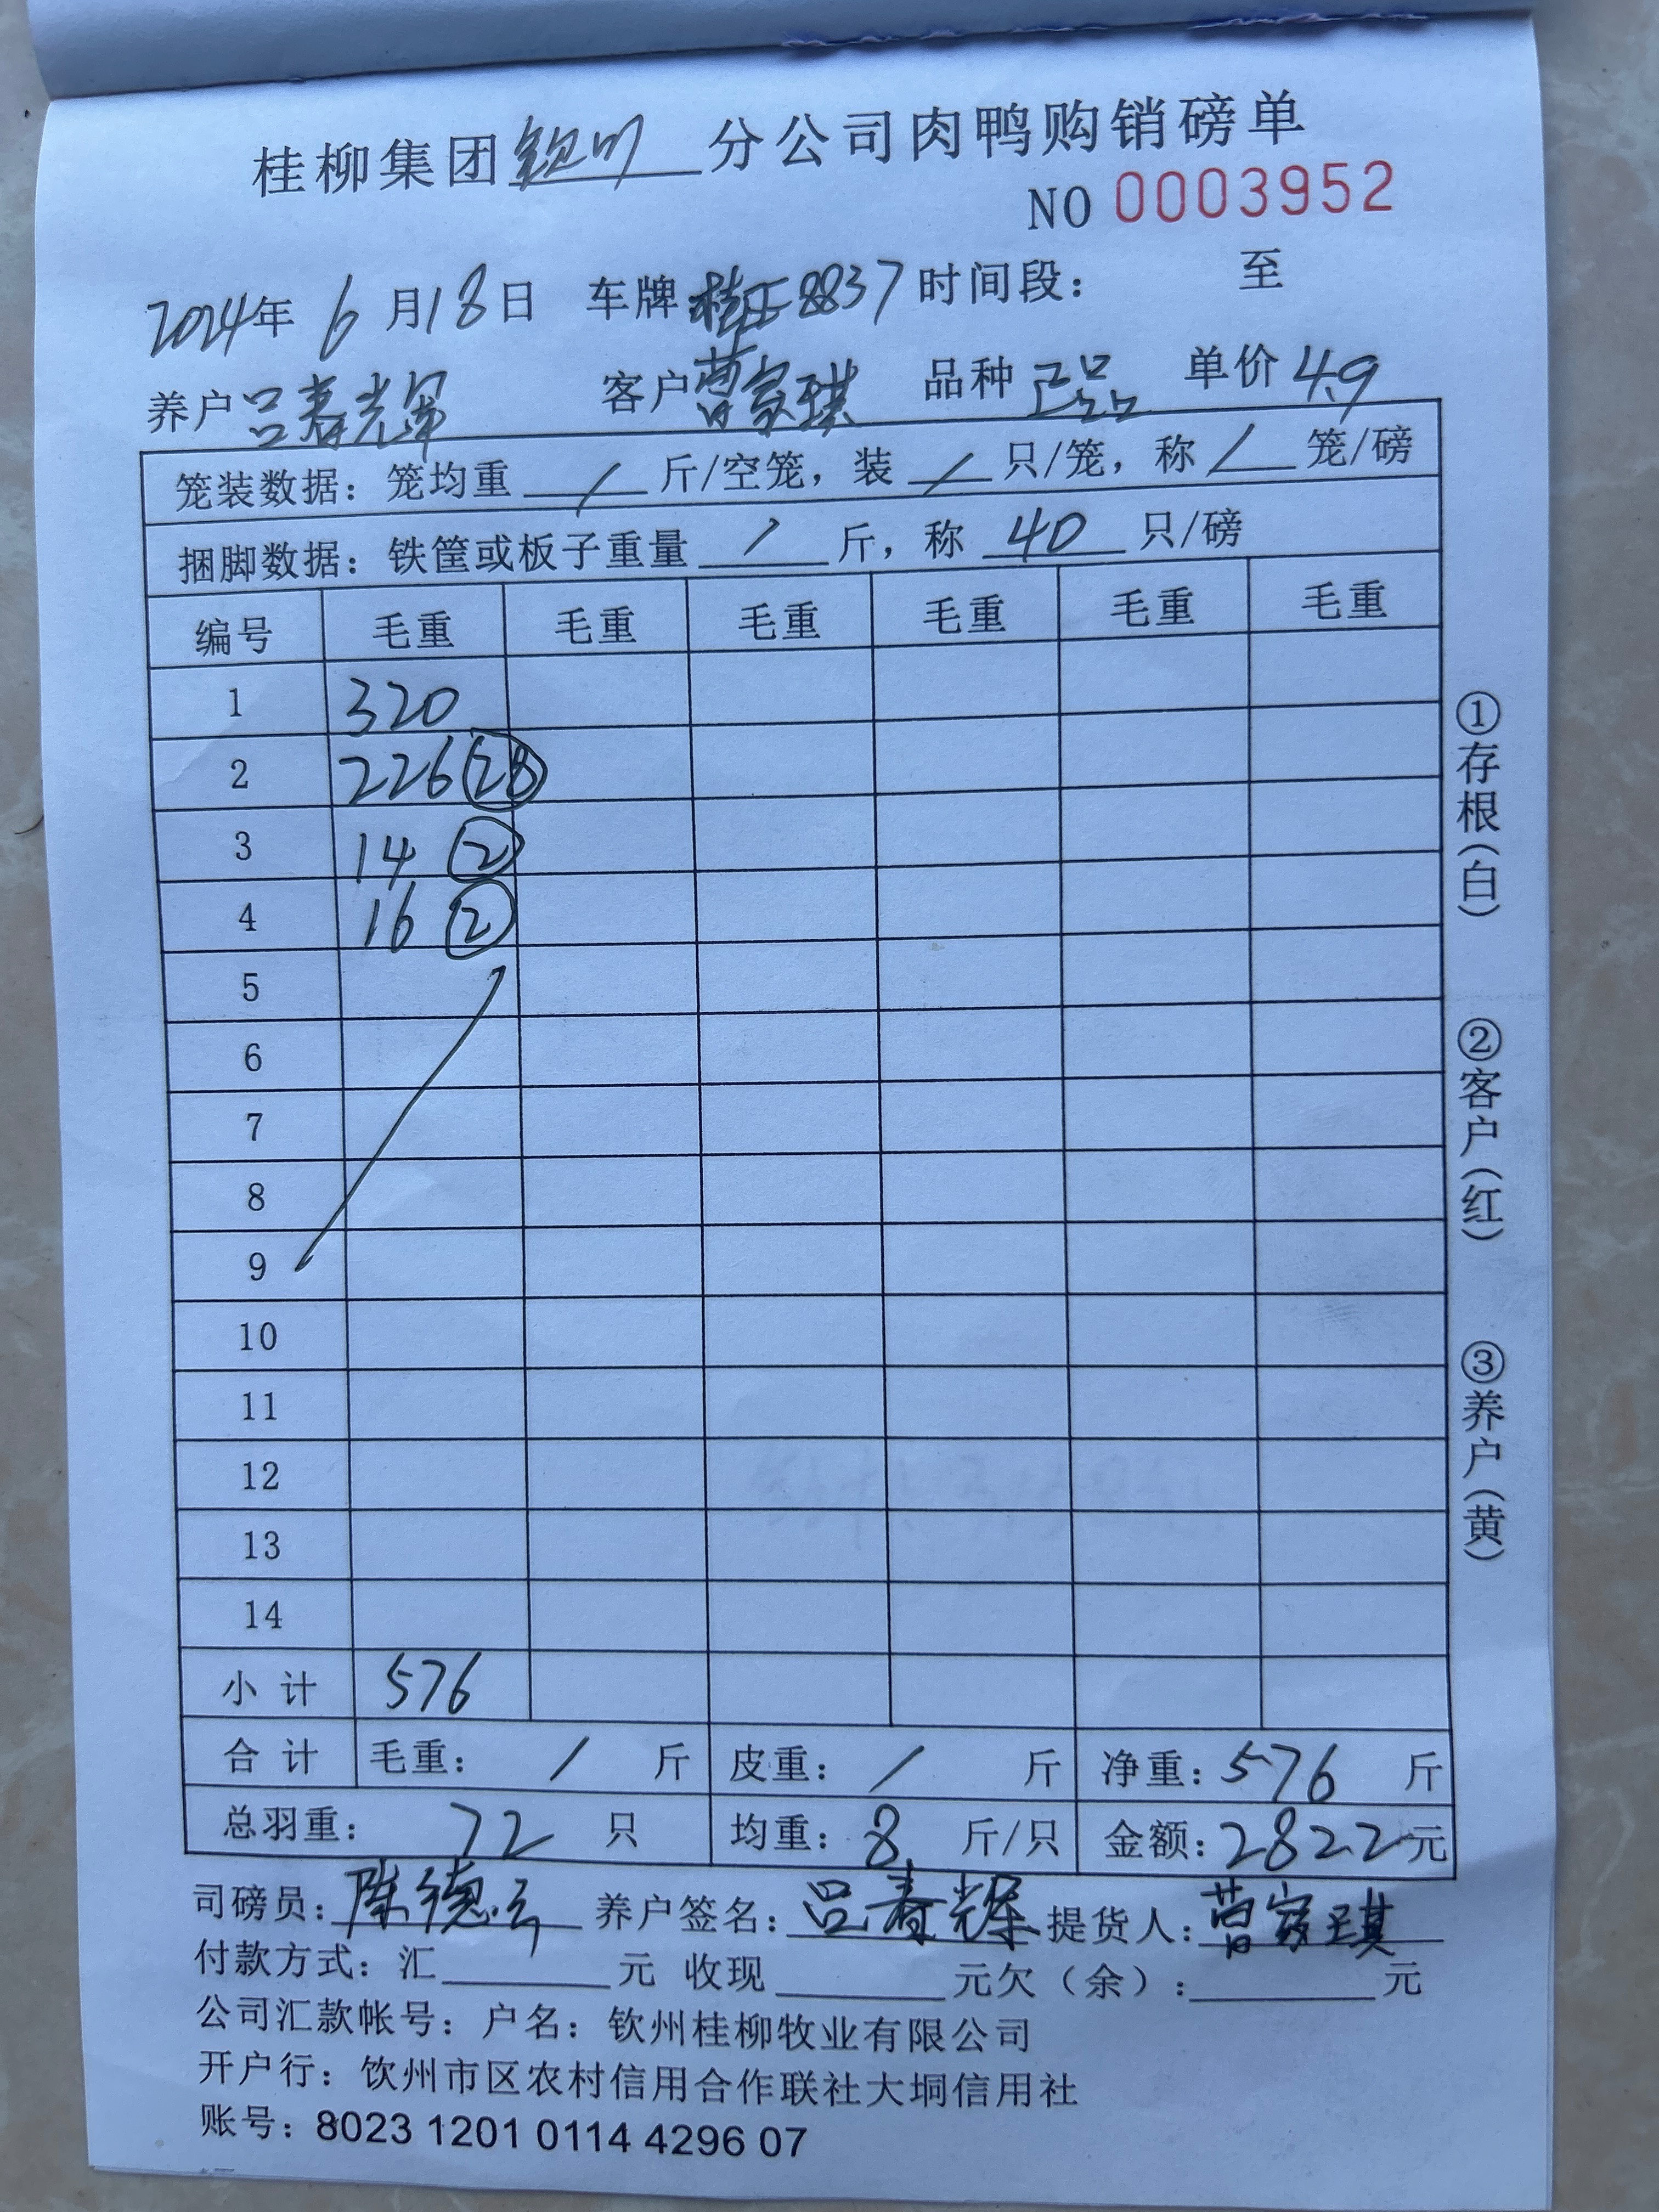 桂柳集团钦州分公司肉鸭购销磅单
NO 0003952
2024年 6月18日 车牌桂E8837时间段： 至
养户吕春光军 客户曹家琪 品种正品 单价4.9
笼装数据：笼均重 / 斤/空笼，装 / 只/笼，称 / 笼/磅
捆脚数据：铁筐或板子重量 / 斤，称 40 只/磅
编号 毛重 毛重 毛重 毛重 毛重 毛重
1 320
2 226 28
3 14 2
4 16 2
5
6
7
8
9
10
11
12
13
14
小计 576
合计 毛重： / 斤 皮重： / 斤 净重：576 斤
总羽重： 72 只 均重：8 斤/只 金额：2822元
司磅员：陈德云 养户签名：吕春辉 提货人：曹家琪
付款方式：汇 元 收现 元欠（余）： 元
公司汇款帐号：户名：钦州桂柳牧业有限公司
开户行：钦州市区农村信用合作联社大垌信用社
账号：8023 1201 0114 4296 07
①存根（白） ②客户（红） ③养户（黄）